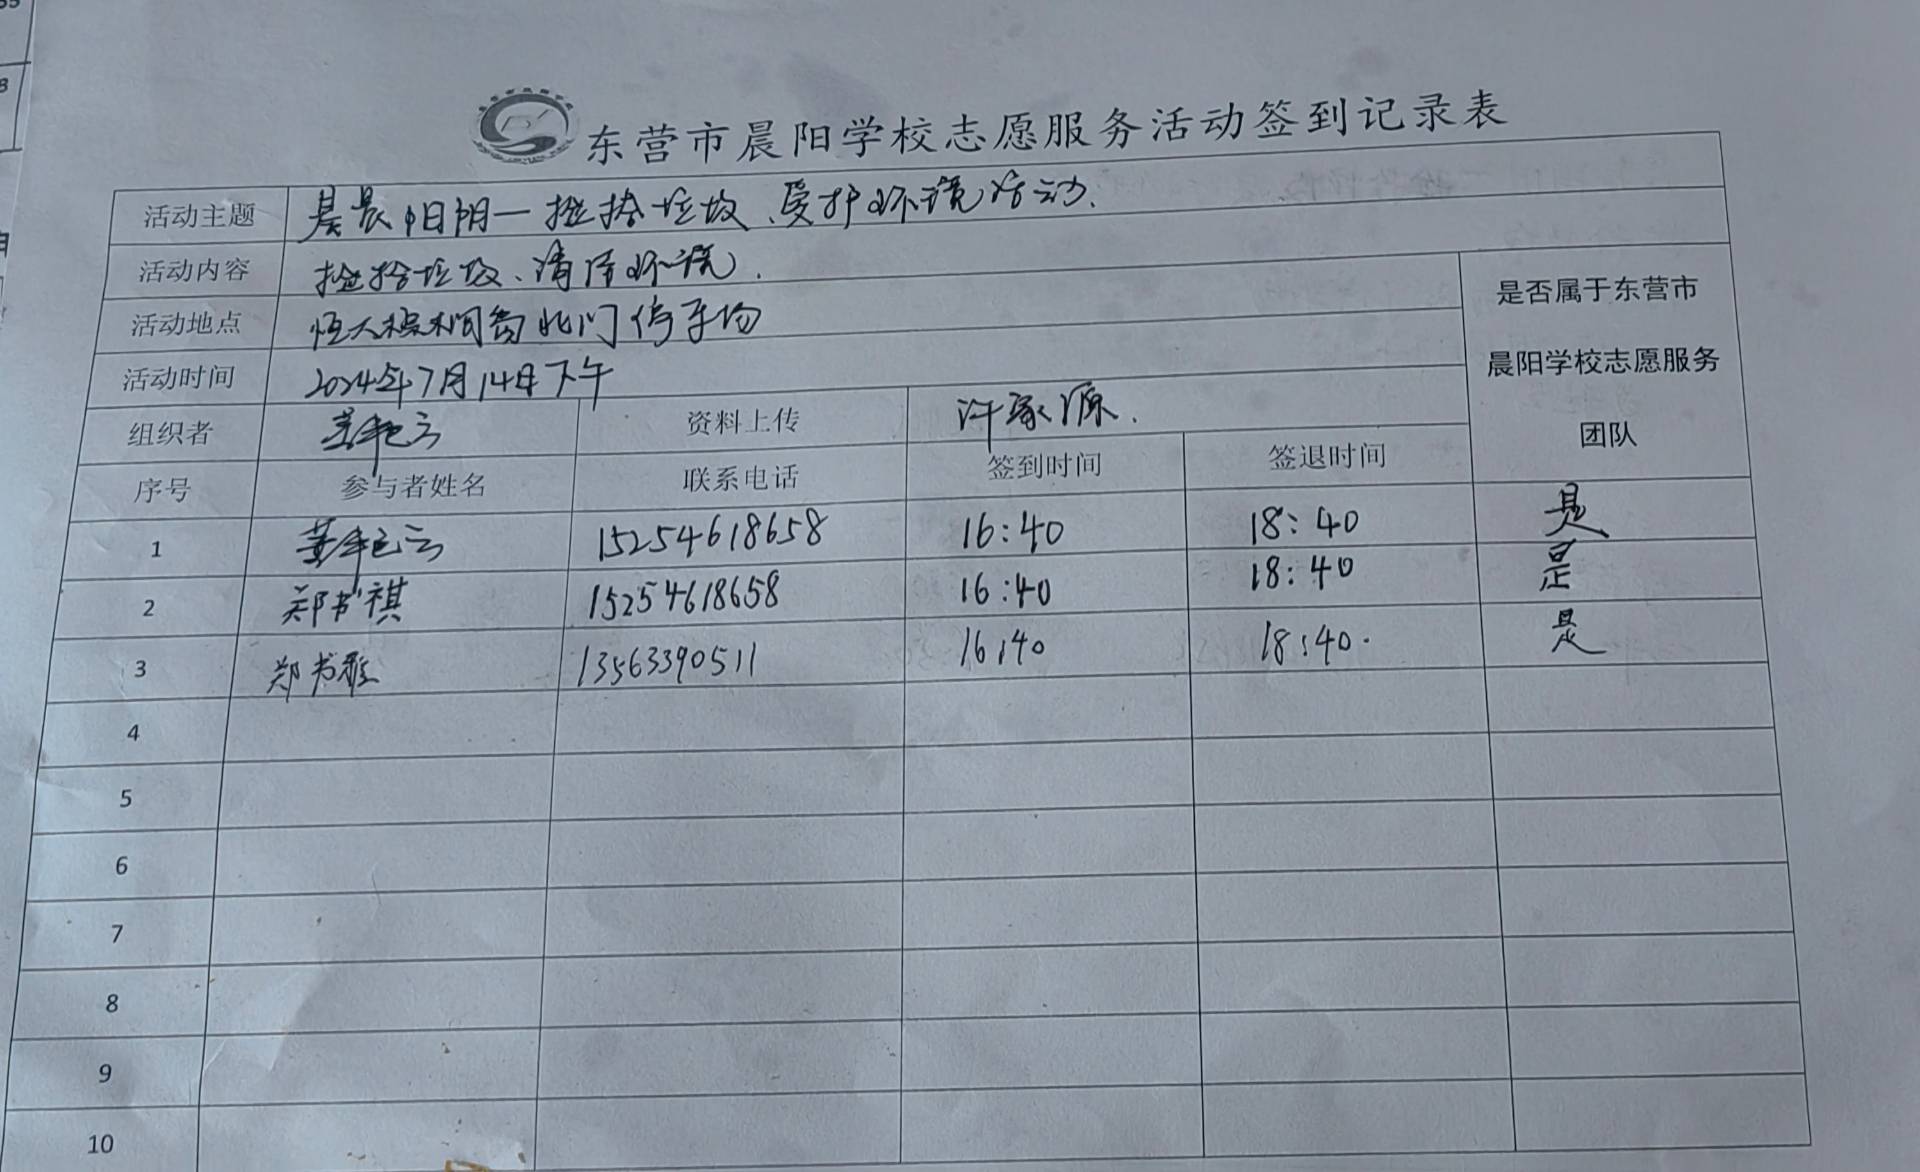 东营市晨阳学校志愿服务活动签到记录表
活动主题 晨阳—捡拾垃圾、爱护环境活动.
活动内容 捡拾垃圾、清洁环境.
活动地点 北门停车场
活动时间 2024年7月14日下午
是否属于东营市
晨阳学校志愿服务
团队
组织者 资料上传 许家源.
序号 参与者姓名 联系电话 签到时间 签退时间
1 15254618658 16:40 18:40 是
2 郑书祺 15254618658 16:40 18:40 是
3 郑书雅 13563390511 16:40 18:40. 是
4
5
6
7
8
9
10